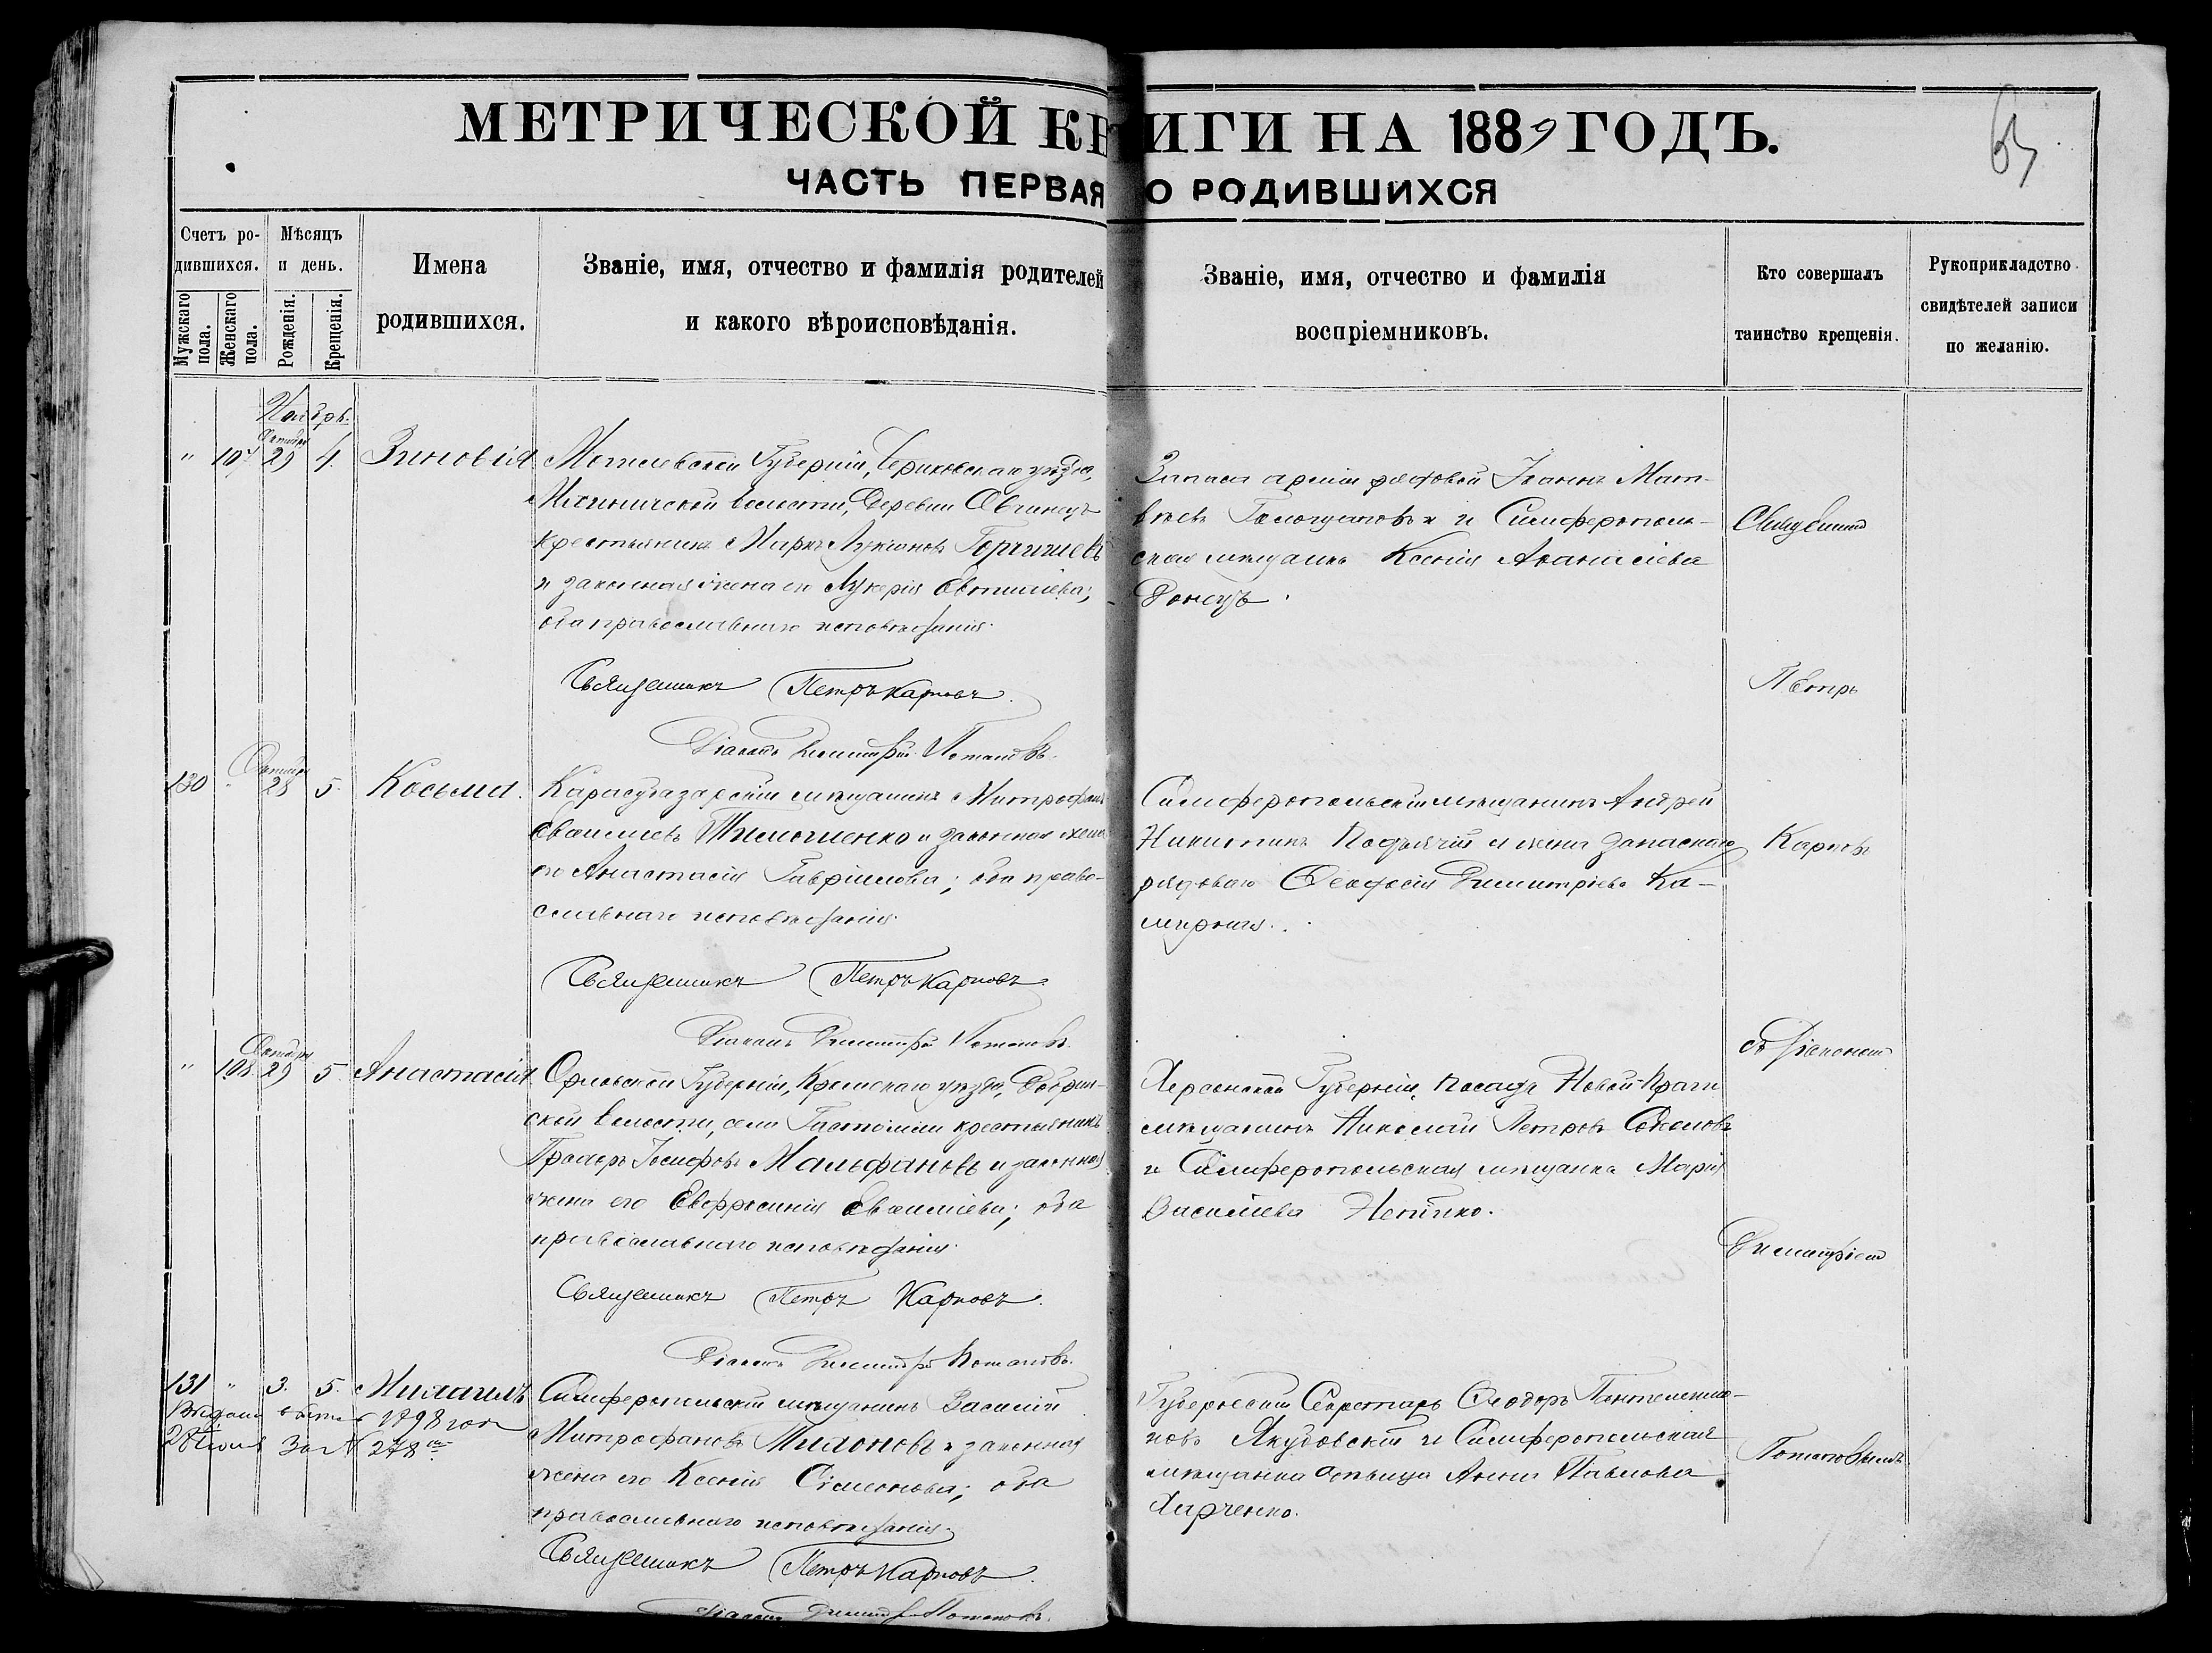 МЕТРИЧЕСКОЙ КНИГИ НА 1889 ГОДЪ.
65
ЧАСТЬ ПЕРВАЯ О РОДИВШИХСЯ
Счетъ родившихся.
Мужскаго пола.
Женскаго пола.
Мѣсяцъ и день.
Рожденія.
Крещенія.
Имена родившихся.
Званіе, имя, отчество и фамилія родителей
и какого вѣроисповѣданія.
Званіе, имя, отчество и фамилія
воспріемниковъ.
Кто совершалъ
таинство крещенія.
Рукоприкладство
свидѣтелей записи
по желанію.
Ноябрь.
Октября
" 107 29 4. Зиновія
Могилевской Губерніи, Чериковскаго уѣзда,
волости, деревни
крестьянинъ Маркъ Лукіановъ
и законная жена его Лукерія Евтихіева;
оба православнаго исповѣданія.
Священникъ Петръ Карповъ.
Діаконъ Димитрій Потаповъ.
Запаса арміи рядовой Іоаннъ Мат-
вѣевъ и Симферополь-
ская мѣщанка Ксенія Аѳанасіева
Октября
130 " 28 5. Косьма.
Карасубазарскій мѣщанинъ Митрофанъ
Евсиміевъ Тимошенко и законная жена
его Анастасія Гавріилова; оба право-
славнаго исповѣданія.
Священникъ Петръ Карповъ.
Діаконъ Димитрій Потаповъ.
Симферопольскій мѣщанинъ Андрей
Никитинъ Подъячій и жена запаснаго
рядоваго Ѳеодосія Димитріева Ка-
Октября
" 108 29 5. Анастасія
Орловской Губерніи, Кромскаго уѣзда,
ской волости, села Гостомли крестьянинъ
Іосифовъ Мальфановъ и законная
жена его Евфросинія; оба
православнаго исповѣданія.
Священникъ Петръ Карповъ.
Діаконъ Димитрій Потаповъ.
Херсонской Губерніи, посада Новой-Праги
мѣщанинъ Николай Петровъ Соколовъ
и Симферопольская мѣщанка Марія
Василіева
131 " 3. 5. Михаилъ
Выдано 1898 года
28 Іюля За № 278
Симферопольскій мѣщанинъ Василій
Митрофановъ и законная
жена его Ксенія Сімеонова; оба
православнаго исповѣданія.
Священникъ Петръ Карповъ.
Діаконъ Димитрій Потаповъ.
Губернскій Секретарь Ѳеодоръ Пантелеимо-
новъ Якубовскій и Симферопольская
мѣщанка дѣвица Анна Павлова
Харченко.
Петръ
Карповъ
съ діакономъ
Димитріемъ
Потаповымъ